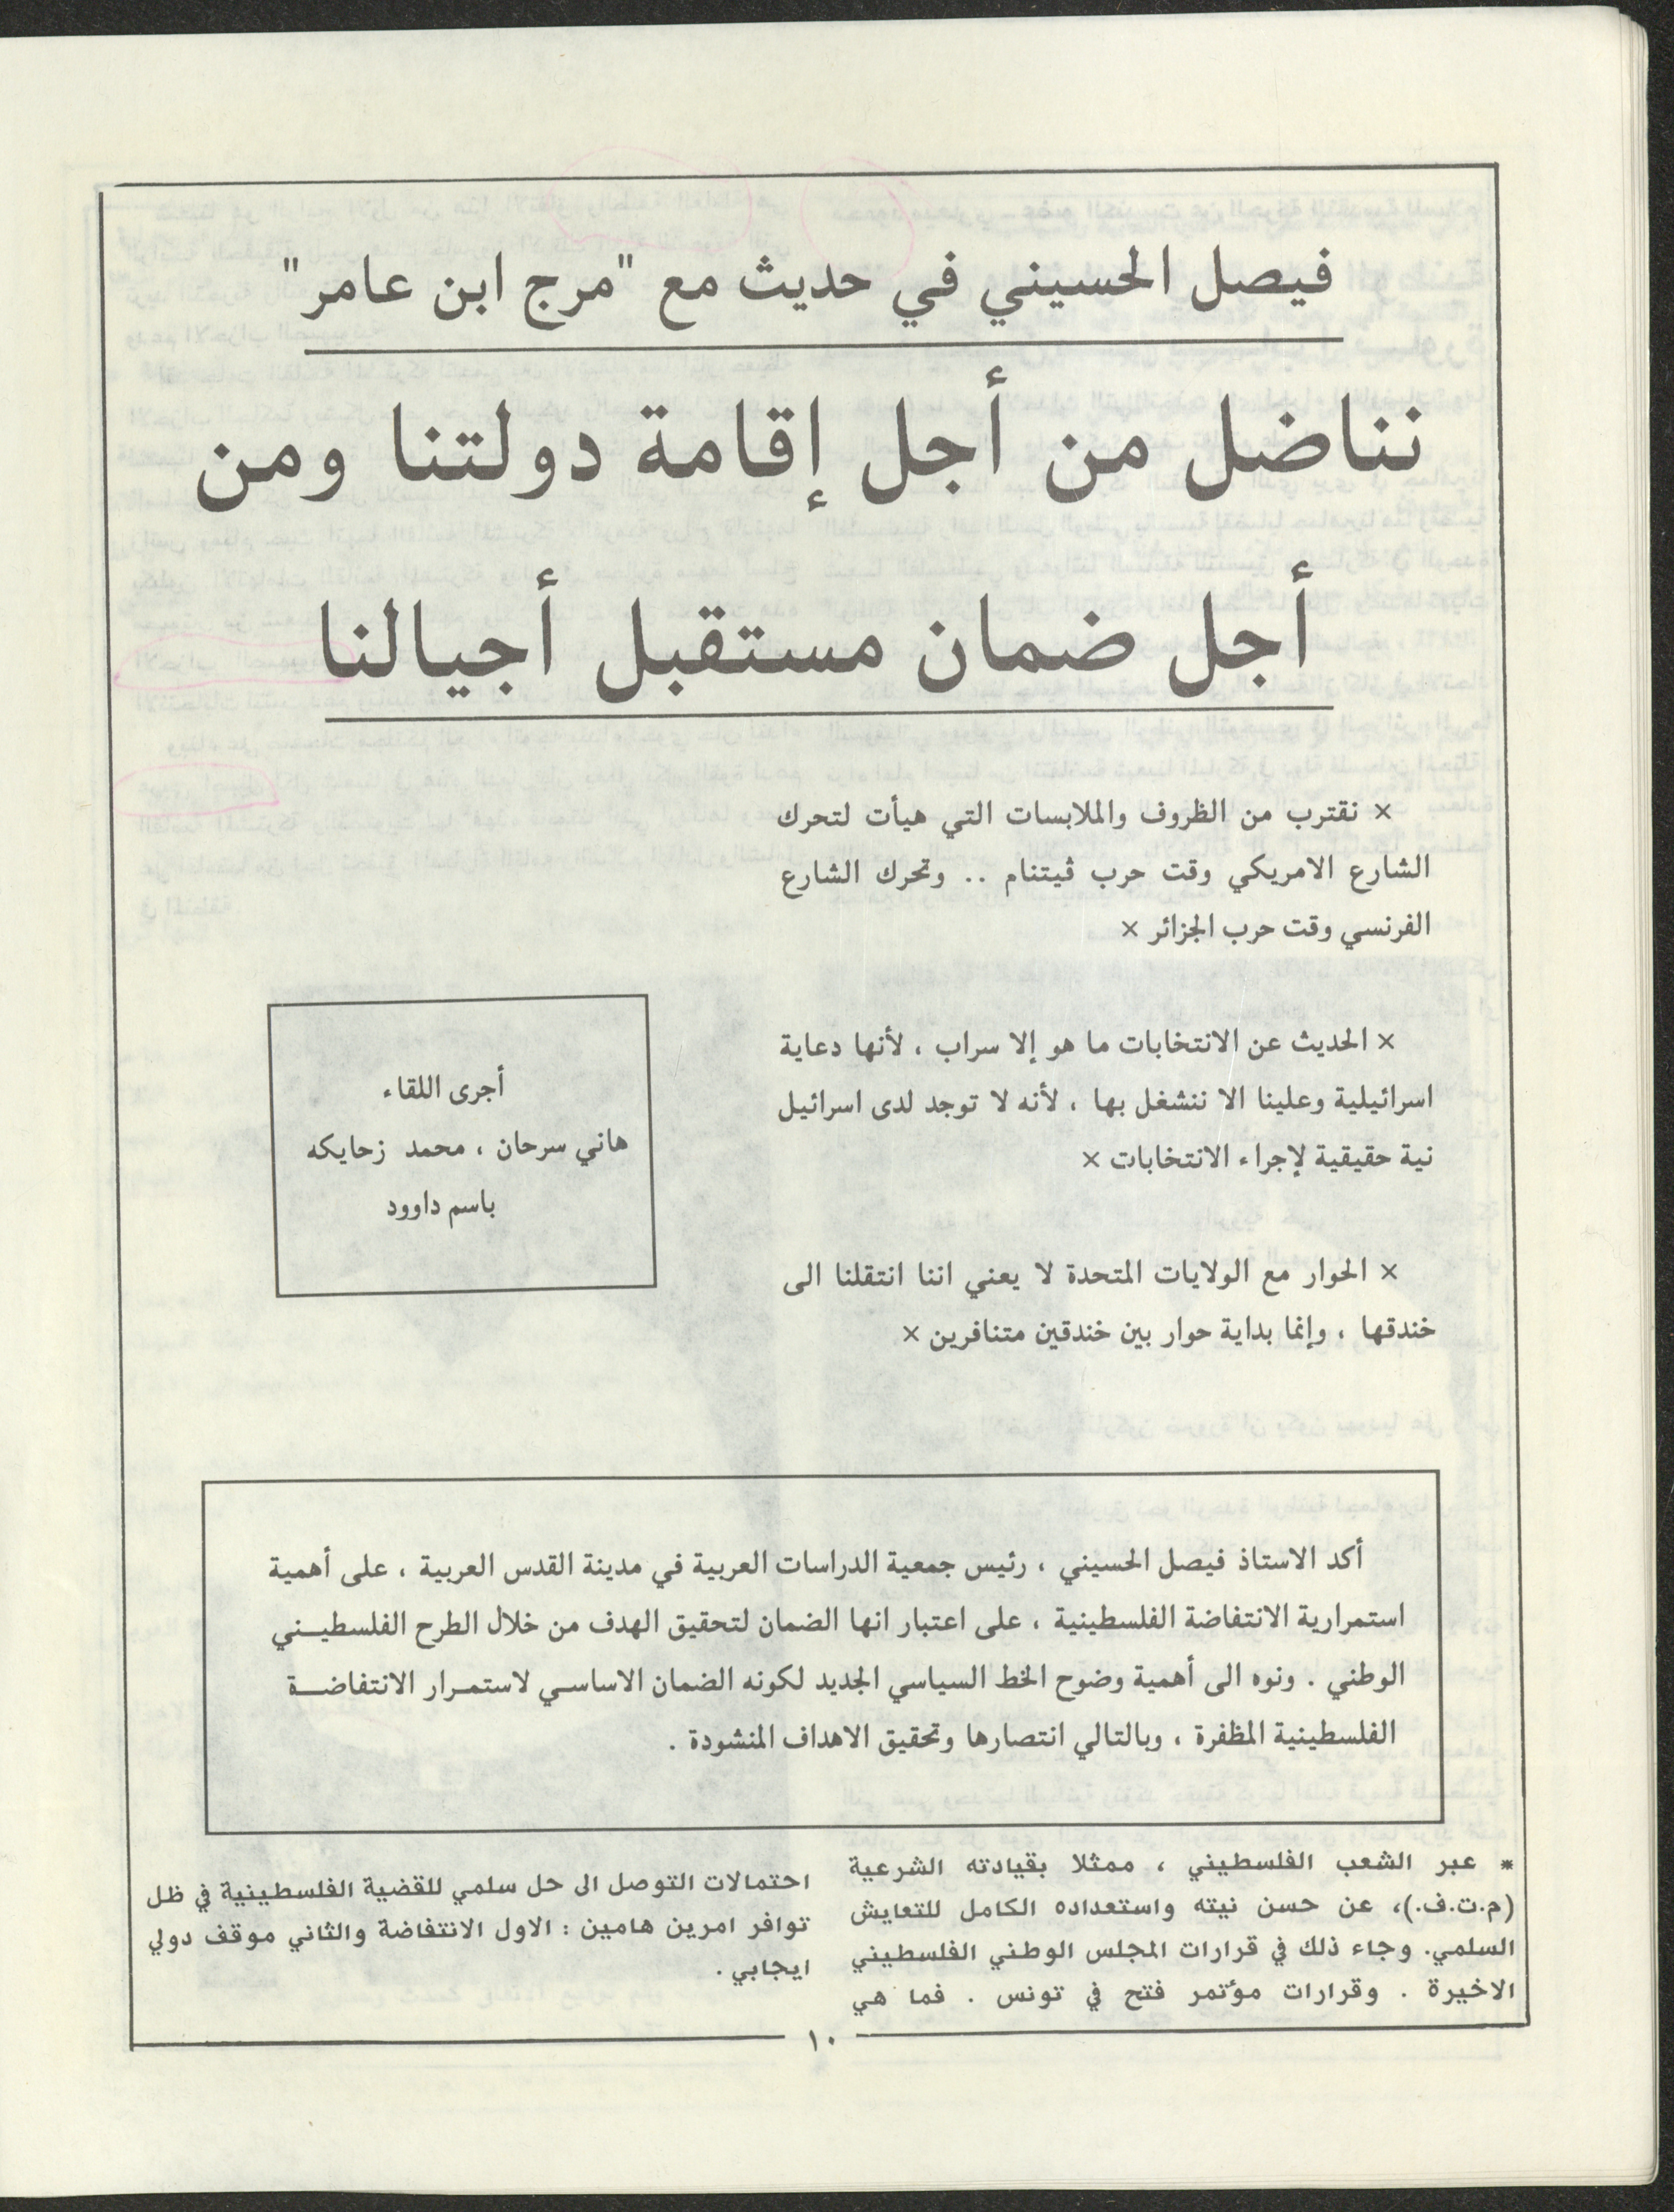 فيصل الحسيني في حديث مع "مرج ابن عامر"
نناضل من أجل إقامة دولتنا ومن
أجل ضمان مستقبل أجيالنا
× نقترب من الظروف والملابسات التي هيأت لتحرك
الشارع الامريكي وقت حرب ڤيتنام .. وتحرك الشارع
الفرنسي وقت حرب الجزائر ×
× الحديث عن الانتخابات ما هو إلا سراب ، لأنها دعاية
اسرائيلية وعلينا الا ننشغل بها ، لأنه لا توجد لدى اسرائيل
نية حقيقية لإجراء الانتخابات ×
× الحوار مع الولايات المتحدة لا يعني اننا انتقلنا الى
خندقها ، وإنما بداية حوار بين خندقين متنافرين ×
أجرى اللقاء
هاني سرحان ، محمد زحايكه
باسم داوود
أكد الاستاذ فيصل الحسيني ، رئيس جمعية الدراسات العربية في مدينة القدس العربية ، على أهمية
استمرارية الانتفاضة الفلسطينية ، على اعتبار انها الضمان لتحقيق الهدف من خلال الطرح الفلسطيـني
الوطني . ونوه الى أهمية وضوح الخط السياسي الجديد لكونه الضمان الاساسـي لاستمـرار الانتفاضـة
الفلسطينية المظفرة ، وبالتالي انتصارها وتحقيق الاهداف المنشودة .
* عبر الشعب الفلسطيني ، ممثلا بقيادته الشرعية
(م.ت.ف.)، عن حسن نيته واستعداده الكامل للتعايش
السلمي. وجاء ذلك في قرارات المجلس الوطني الفلسطيني
الاخيرة . وقرارات مؤتمر فتح في تونس . فما هي
احتمالات التوصل الى حل سلمي للقضية الفلسطينية في ظل
توافر امرين هامين : الاول الانتفاضة والثاني موقف دولي
ايجابي .
١٠